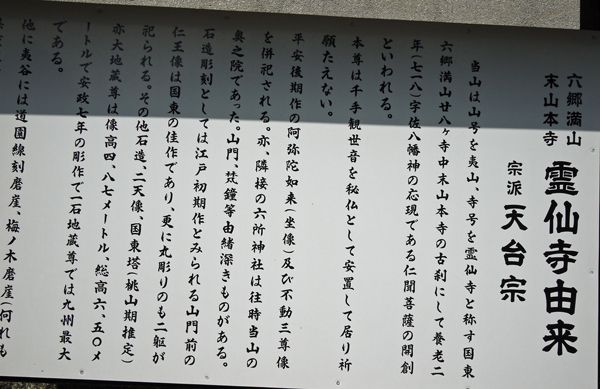 六郷満山
末山本寺
霊仙寺由来
宗派 天台宗
当山は山号を夷山、寺号を霊仙寺と称す国東
六郷満山廿八ヶ寺中末山本寺の古刹にして養老二
年(七一八)宇佐八幡神の応現である仁聞菩薩の開創
といわれる。
本尊は千手観世音を秘仏として安置して居り祈
願たえない。
平安後期作の阿弥陀如来(坐像)及び不動三尊像
を併祀される。亦、隣接の六所神社は往時当山の
奥之院であった。山門、梵鐘等由緒深きものがある。
石造彫刻としては江戸初期作とみられる山門前の
仁王像は国東の佳作であり、更に丸彫りのも二躯が
祀られる。その他石造、二天像、国東塔(桃山期推定)
亦大地蔵尊は像高四、八七メートル、総高六、五〇メ
ートルで安政七年の彫作で一石地蔵尊では九州最大
である。
他に夷谷には道園線刻磨崖、梅ノ木磨崖(何れも